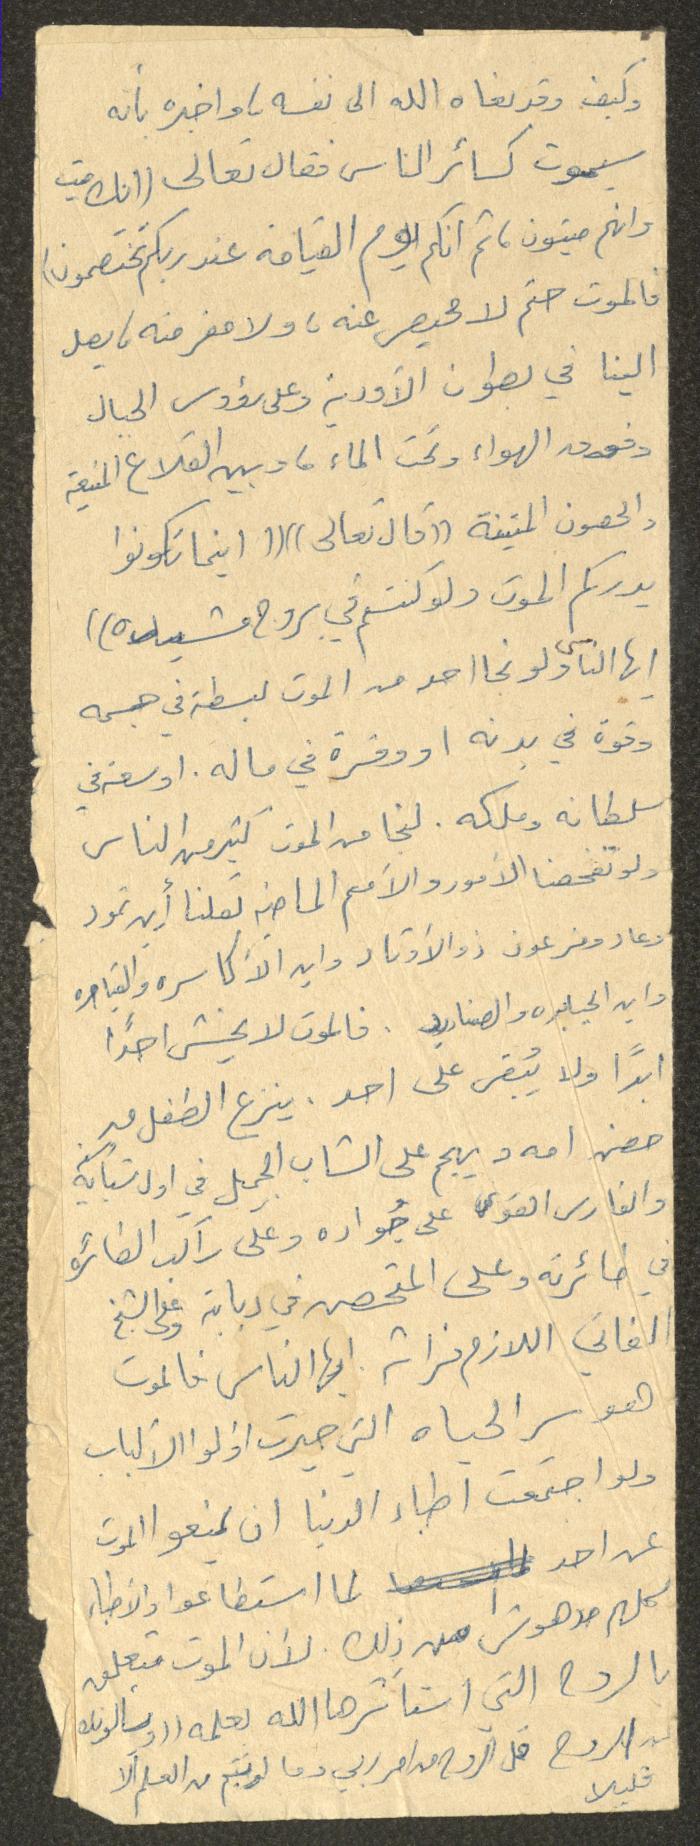 وكيف وقد نعاه الله الى نفسه، واخبره بأنه
سيموت كسائر الناس فقال تعالى ((انك ميت
وانهم ميتون، ثم انكم يوم القيامه عند ربكم تختصمون))
فالموت حتم لا محيص عنه، ولا مفر منه، يصل
الينا في بطون الأودية وعلى رؤوس الجبال
وفوق الهواء وتحت الماء، وبين القلاع المنيعة
والحصون المتينة ((قال تعالى)) ((اينما تكونوا
يدرككم الموت ولو كنتم في بروج مشيده))
ايها الناس ولو نجا احد من الموت لبسطة في جسمه
وقوة في بدنه او وفرة في ماله. او سعة في
سلطانه وملكه. لنجا من الموت كثير من الناس
ولو تفحصنا الأمور والأمم الماضيه لقلنا أين ثمود
وعاد وفرعون ذو الأوتاد واين الأكاسره والقياصره
واين الجبابره والصناديد. فالموت لا يخشى احدًا
ابدًا ولا يُبقي على احد. ينزع الطفل من
حضن امه ويهجم على الشاب الجميل في اول شبابه
والفارس القوي على جُواده وعلى راكب الطائرة
في طائرته وعلى المتحصن في دبابة وعلى الشيخ
الفاني اللازم فراشه. ايها الناس فالموت
هو سر الحياه التي حيرت اولوا الألباب
ولو اجتمعت اطباء الدنيا ان يمنعوا الموت
عن احد لما استطاعوا والأطباء
كلهم مدهوش من ذلك. لأن الموت متعلق
بالروح التي استأثرها الله بعلمه ((ويسالونك
عن الروح قل الروح من امر ربي وما اوتيتم من العلم الا
قليلا